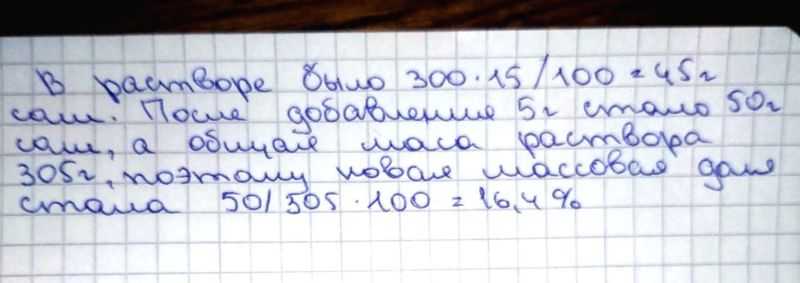 В растворе было 300·15/100=45г
соли. После добавления 5г стало 50г
соли, а общая маса раствора
305г, поэтому новая массовая доля
стала 50/305·100=16,4%